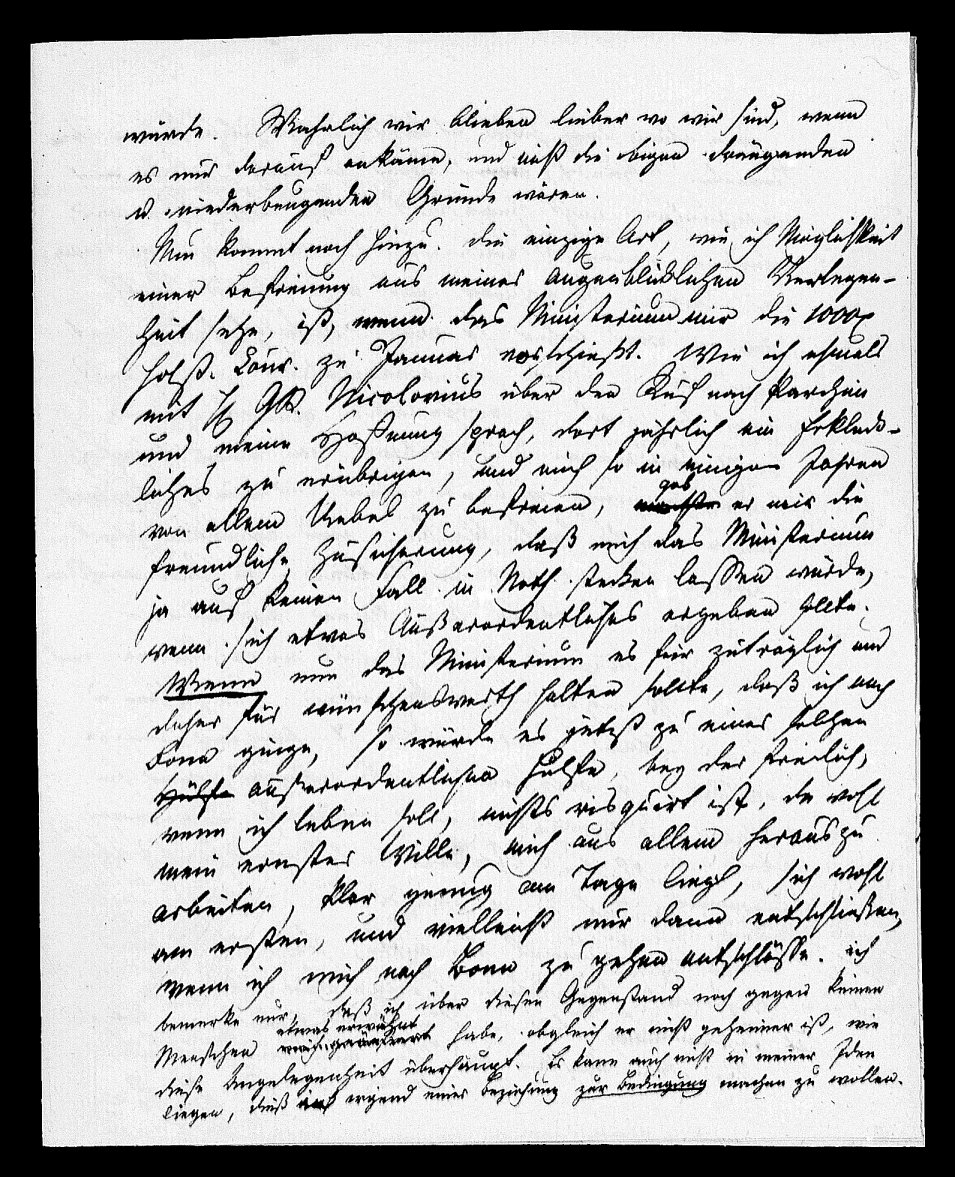 würde. Wahrlich wir blieben lieber wo wir sind, wenn
es nur darauf ankäme, und nicht die obigen drängenden
u. niederbeugenden Gründe wären.
Nun kommt noch hinzu. Die einzige Art, wie ich Möglichkeit
einer Befreiung aus meiner augenblicklichen Verlegen-
heit sehe, ist, wenn das Ministerium mir die 1000
holst. Cour. zu Januar vorschießt. Wie ich ehmals
mit H GR. Nicolovius über den Ruf nach Parchim
und meine Hoffnung sprach, dort jährlich ein Erkleck-
liches zu erübrigen, und mich so in einigen Jahren
von allem Uebel zu befreien, gab er mir die
freundliche Zusicherung, daß mich das Ministerium
ja auf keinen Fall in Noth stecken lassen würde,
wenn sich etwas Außerordentliches ergeben sollte.
Wenn nun das Ministerium es für zuträglich und
daher für wünschenswerth halten sollte, daß ich nach
Bonn ginge, so würde es jetzt zu einer solchen
Hülfe außerordentlichen Hülfe, bey der freilich,
wenn ich leben soll, nichts risquirt ist, da wohl
mein ernster Wille, mich aus allem herauszu
arbeiten, klar genug am Tage liegt, sich wohl
am ersten, und vielleicht nur dann entschließen,
wenn ich mich nach Bonn zu gehen entschlösse. ich
bemerke nur, daß ich über diesen Gegenstand noch gegen keinen
Menschen etwas erwähnt habe, obgleich er nicht geheimer ist, wie
diese Angelegenheit überhaupt. Es kann auch nicht in meiner Idee
liegen, dieß irgend einer Beziehung zur Bedingung machen zu wollen.